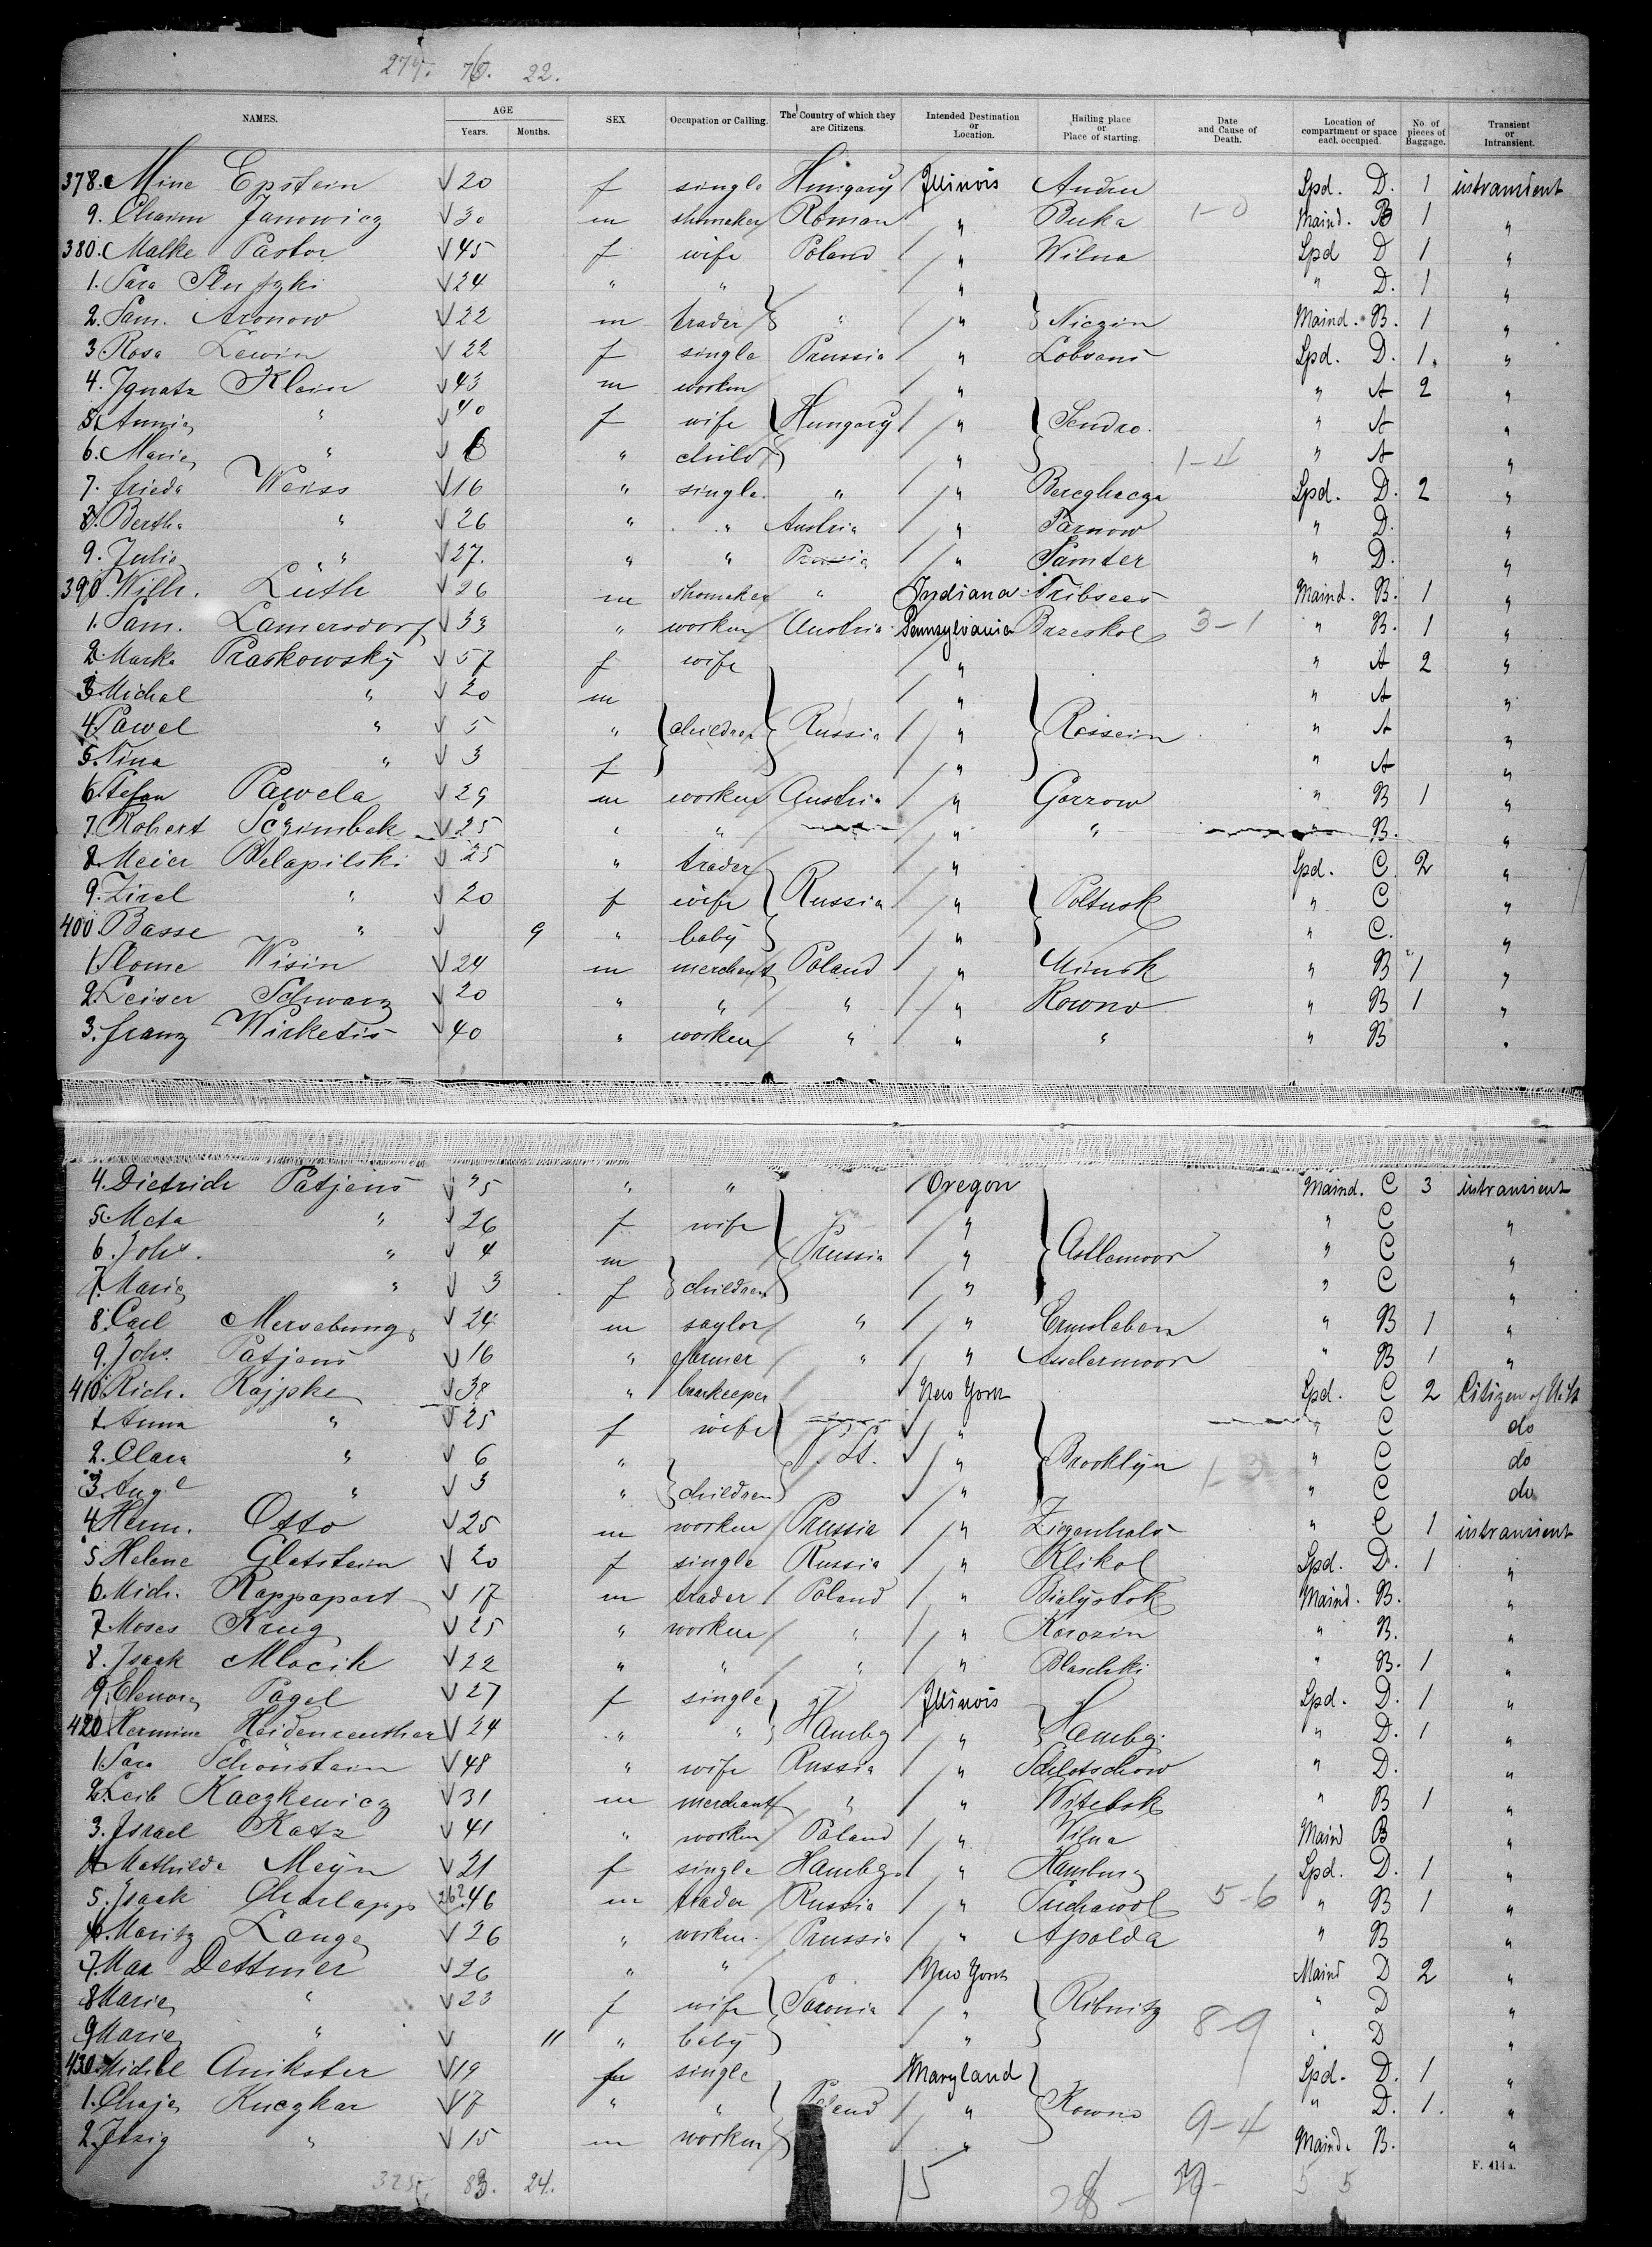 274. 76. 22.
NAMES. AGE Years. Months. SEX Occupation or Calling. The Country of which they are Citizens. Intended Destination or Location. Hailing place or Place of starting. Date and Cause of Death. Location of compartment or space each occupied. No. of pieces of Baggage. Transient or Intransient.
378. Mine Epstein √ 20 f single Hungary Illinois Spd. D. 1 intransient
9. Chaim Janowicz √ 30 m shomaker Roman " Buka 1-0 Maind. B 1 "
380. Malke Pastor √ 45 f wife Poland " Wilna Spd D 1 "
1. Sara √ 24 " " " " D. 1 "
2. Sam. Aronow √ 22 m trader " " Niezin Maind. B. 1 "
3. Rosa Lewin √ 22 f single Prussia " Lobsens Spd. D. 1. "
4. Ignatz Klein √ 43 m worker " " A 2 "
5. Annie " √ 40 f wife Hungary " Sendro. " A "
6. Marie " √ 6 " child " 1-4 " A "
7. Frieda Weiss √ 16 " single. " " Spd. D. 2 "
8. Bertha " √ 26 " " Austria " Tarnow " D. "
9. Julie " √ 27. " " " Samter " D. "
390. Wilh. Lüth √ 26 m shomaker " Indiana Tribsees Maind. B. 1 "
1. Sam. Lamersdorf √ 33 " worker Austria Pennsylvania Brzeskol 3-1 " B. 1 "
2. Marka Praskowsky √ 57 f wife " " A 2 "
3. Michal " √ 20 m " " A "
4. Pawel " √ 5 " children Russia " Rossein " A "
5. Nina " √ 3 f " " A "
6. Stefan Pawela √ 29 m worker Austria " Gorzow " B 1 "
7. Robert Sczimbek √ 25 " " " " " B. "
8. Meier Belapilski √ 25 " trader " Spd. C. 2 "
9. Zirel " √ 20 f wife Russia " Poltusk " C "
400 Basse " √ 9 " baby " " C. "
1. Slome Wisin √ 24 m merchant Poland " Minsk " B 1 "
2. Leiser Schwarz √ 20 " " " " Kowno " B 1 "
3. Franz Wirketis √ 40 " worker " " " " B "
4. Dietrich Patjens √ 35 " " Oregon Maind. C 3 intransient
5. Meta " √ 26 f wife " " C "
6. Johs. " √ 4 m Prussia " " C "
7. Marie " √ 3 f children " " C "
8. Carl Merseburg √ 24 m saylor " " Ermsleben " B 1 "
9. Johs. Patjens √ 16 " farmer " " Asselermoor " B 1 "
410. Rich. Kojpke √ 38 " barkeeper New York Spd. C 2 Citizen of U. St.
1. Anna " √ 25 f wife " " C do
2. Clara " √ 6 " U. St. " Brooklyn " C do
3. Aug. " √ 3 " children " 1-3 " C do
4. Herm. Otto √ 25 m worker Prussia " Ziegenhals " C 1 intransient
5. Helene Glatstein √ 20 f single Russia " Klikol Spd. D. 1 "
6. Mich. Rappaport √ 17 m trader Poland " Bialystok Maind. B. "
7. Moses Krug √ 25 " worker " " Korozin " B. "
8. Isaak Mlocik √ 22 " " " " Blaschki " B. 1 "
9. Elenore Pagel √ 27 f single Illinois Spd. D. 1 "
420. Hermine √ 24 " " Hambg " Hambg. " D. 1 "
1. Sara Schönstein √ 48 " wife Russia " Schlotschow " D. "
2. Leib Kaczkewicz √ 31 m merchant " " Witebsk " B 1 "
3. Israel Katz √ 41 " worker Poland " Vilna Maind B "
4. Mathilde Meyn √ 21 f single Hambg. " Hamburg Spd. D. 1 "
5. Isaak Charlapp 26? 46 m trader Russia " Suchawol 5-6 " B 1 "
6. Moritz Lange √ 26 " worker. Prussia " Apolda " B "
7. Max Dettmer √ 26 " " New York Maind D 2 "
8. Marie " √ 23 f wife Saxonia " Ribnitz " D "
9. Marie " √ 11 " baby " 8-9 " D "
430. Michle Anikster √ 19 f single Maryland Spd. D. 1 "
1. Chaje Kuczkar √ 17 " " Poland " Kowno " D. 1. "
2. Itzig " √ 15 m worker " 9-4 Maind. B. "
325. 83. 24. 15 28- 5 5
F. 414a.